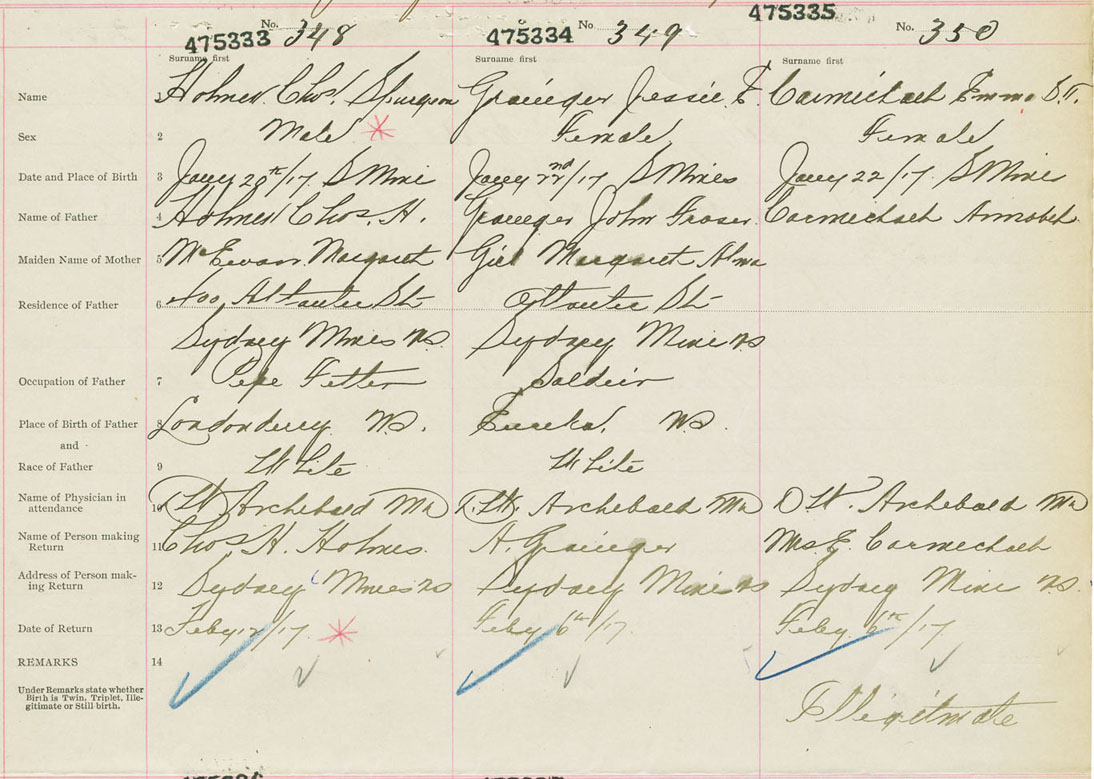 475333 No. 348 475334 No 349 475335 No. 350
Surname first Surname first Surname first
Name 1 Holmes Chas. Spurgeon Grainger Jessie F. Carmichael Emma
Sex 2 Male * Female Female
Date and Place of Birth 3 Jany 20th/17. S Mines Jany 22nd/17 S Mines Jany 22/17. S Mines
Name of Father 4 Holmes Chas. H. Grainger John Fraser Carmichael Annabel
Maiden Name of Mother 5 McEwan Margaret Margaret Alma
Residence of Father 6 Atlantic St Atlantic St
Sydney Mines NS. Sydney Mines NS
Occupation of Father 7 Pipe Fitter Soldeir
Place of Birth of Father 8 Londonderry NS. Eureka. NS.
and
Race of Father 9 White White
Name of Physician in
attendance 10 Archibald MD Archibald MD Archibald MD
Name of Person making
Return 11 Chas. H. Holmes. A. Grainger Mrs E. Carmichael
Address of Person mak-
ing Return 12 Sydney Mines NS Sydney Mines NS Sydney Mines NS.
Date of Return 13 Feby /17 * Feby 6th/17. Feby 6th/17
REMARKS 14
Under Remarks state whether
Birth is Twin, Triplet, Ille-
gitimate or Still-birth.
Illegitmate